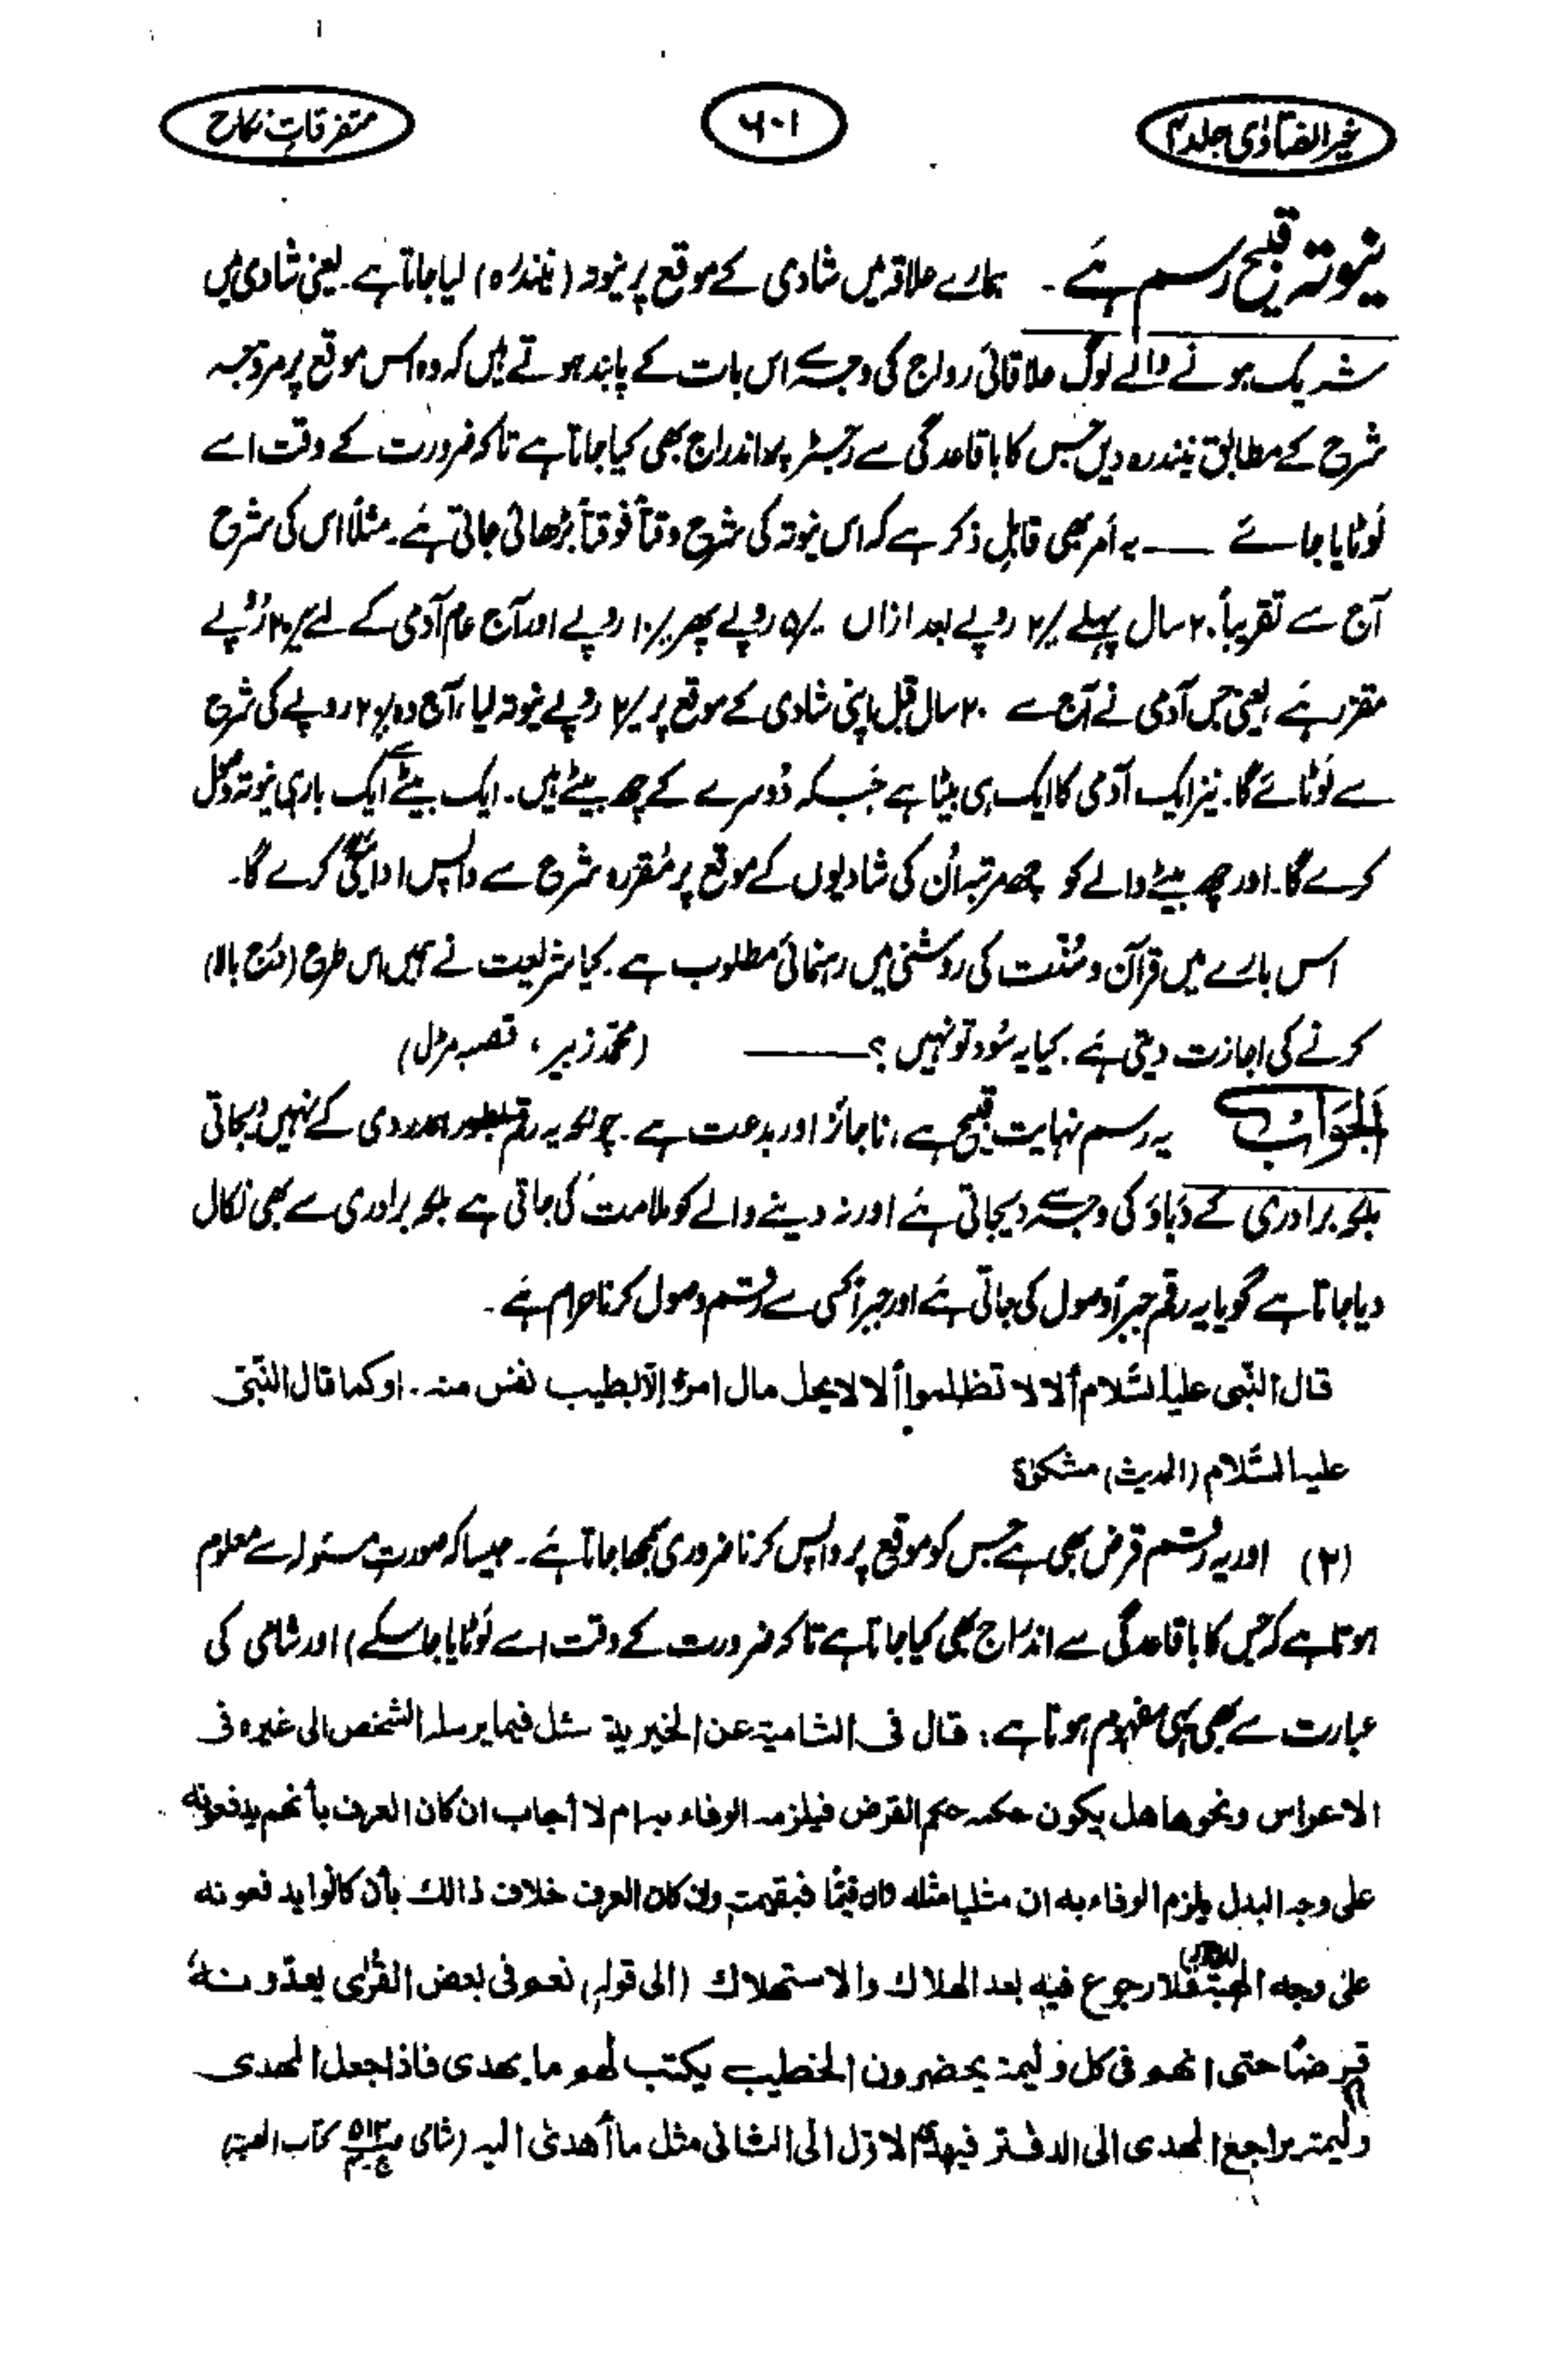 خیر الفتاوٰی جلد ۴
۶۰۱
متفرقاتِ نکاح
نیوتہ قبیح رسم ہے ۔ ہمارے علاقہ میں شادی کے موقع پر نیوتہ (نیندرہ) لیا جاتا ہے ۔ یعنی شادی میں
شریک ہونے والے لوگ علاقائی رواج کی وجہ سے اس بات کے پابند ہوتے ہیں کہ وہ اس موقع پر مروّجہ
شرح کے مطابق نیندرہ دیں جس کا باقاعدگی سے رجسٹر پر اندراج بھی کیا جاتا ہے تاکہ ضرورت کے وقت اسے
لوٹایا جائے ــــ یہ امر بھی قابلِ ذکر ہے کہ اس نیوتہ کی شرح وقتاً فوقتاً بڑھائی جاتی ہے ۔ مثلاً اس کی شرح
آج سے تقریباً ۲۰ سال پہلے /۲ روپے بعد ازاں /۵ روپے پھر /۱۰ روپے اور آج عام آدمی کے لیے /۲۰ روپے
مقرر ہے یعنی جس آدمی نے آج سے ۲۰ سال قبل اپنی شادی کے موقع پر /۲ روپے نیوتہ لیا ، آج وہ /۲۰ روپے کی شرح
سے لوٹائے گا ۔ نیز ایک آدمی کا ایک ہی بیٹا ہے جبکہ دوسرے کے چھ بیٹے ہیں ۔ ایک بیٹے ایک بار ہی نیوتہ وصول
کرے گا ۔ اور چھ بیٹے والے کو چھ مرتبہ اُن کی شادیوں کے موقع پر مقررہ شرح سے واپس ادائیگی کرے گا ۔
اس بارے میں قرآن و سُنّت کی روشنی میں رہنمائی مطلوب ہے ۔ کیا شریعت نے ہمیں اس طرح (درج بالا)
کرنے کی اجازت دیتی ہے ۔ کیا یہ سُود تو نہیں ؟ ــــــ (محمّد زبیر ، قصبہ مڑل)
اَلجَوَابُ یہ رسم نہایت قبیح ہے ، ناجائز اور بدعت ہے ۔ چونکہ یہ رقم بطور ہمدردی کے نہیں دیجاتی
بلکہ برادری کے دباؤ کی وجہ سے دیجاتی ہے اور نہ دینے والے کو ملامت کی جاتی ہے بلکہ برادری سے بھی نکال
دیا جاتا ہے گویا یہ رقم جبراً وصول کی جاتی ہے اور جبراً کسی سے رقم وصول کرنا حرام ہے ۔
قال النّبی علیہ السّلام ألا لا تظلموا ألا لا یحل مال امرئ إلّا بطیب نفس منہ ۔ او کما قال النّبی
علیہ السّلام (الحدیث) مشکوٰۃ
(۲) اور یہ رقم قرض بھی ہے جس کو موقع پر واپس کرنا ضروری سمجھا جاتا ہے ۔ جیسا کہ صورتِ مسئولہ سے معلوم
ہوتا ہے کہ جس کا باقاعدگی سے اندراج بھی کیا جاتا ہے تاکہ ضرورت کے وقت اسے لوٹایا جاسکے) اور شامی کی
عبارت سے بھی یہی مفہوم ہوتا ہے : قال فی الشامیۃ عن الخیریۃ سئل فیما یرسلہ الشخص الی غیرہ فی
الاعراس ونحوھا ھل یکون حکمہ حکم القرض فیلزمہ الوفاء بہ ام لا أجاب ان کان العرف بأنھم یدفعونہ
علی وجہ البدل یلزم الوفاء بہ ان مثلیا مثلہ وان قیمیًا فبقیمتہ وان کان العرف خلاف ذالک بأن کانوا یدفعونہ
علی وجہ الھبۃ فلا رجوع فیہ بعد الھلاک والاستھلاک (الی قولہ) نعم فی بعض القرٰی یعدّونہ
قرضًا حتی انھم فی کل ولیمۃ یحضرون الخطیب یکتب لھم ما یھدی فاذا جعل المھدی
ولیمۃ یراجع المھدی الی الدفتر فیھدی الاوّل الی الثانی مثل ما أھدٰی الیہ (شامی کتاب الھبۃ)